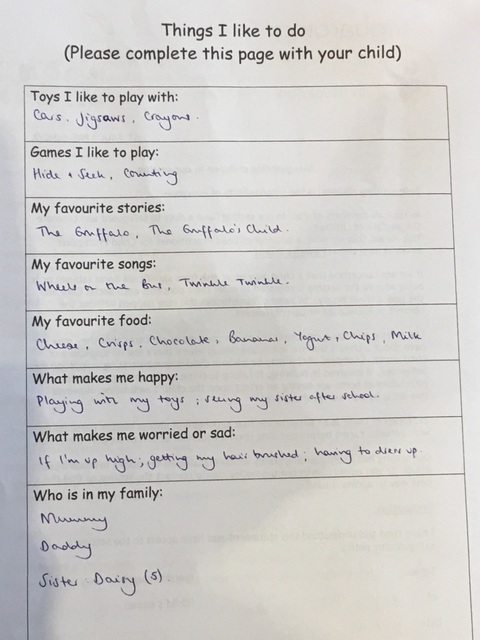 Things I like to do
(Please complete this page with your child)
Toys I like to play with:
Cars, Jigsaws, Crayons.
Games I like to play:
Hide + Seek, Counting
My favourite stories:
The Gruffalo, The Gruffalo's Child.
My favourite songs:
Wheels on the Bus, Twinkle Twinkle.
My favourite food:
Cheese, Crisps, Chocolate, Bananas, Yogurt, Chips, Milk
What makes me happy:
Playing with my toys; seeing my sister after school.
What makes me worried or sad:
If I'm up high; getting my hair brushed; having to dress up.
Who is in my family:
Mummy
Daddy
Sister Daisy (5).